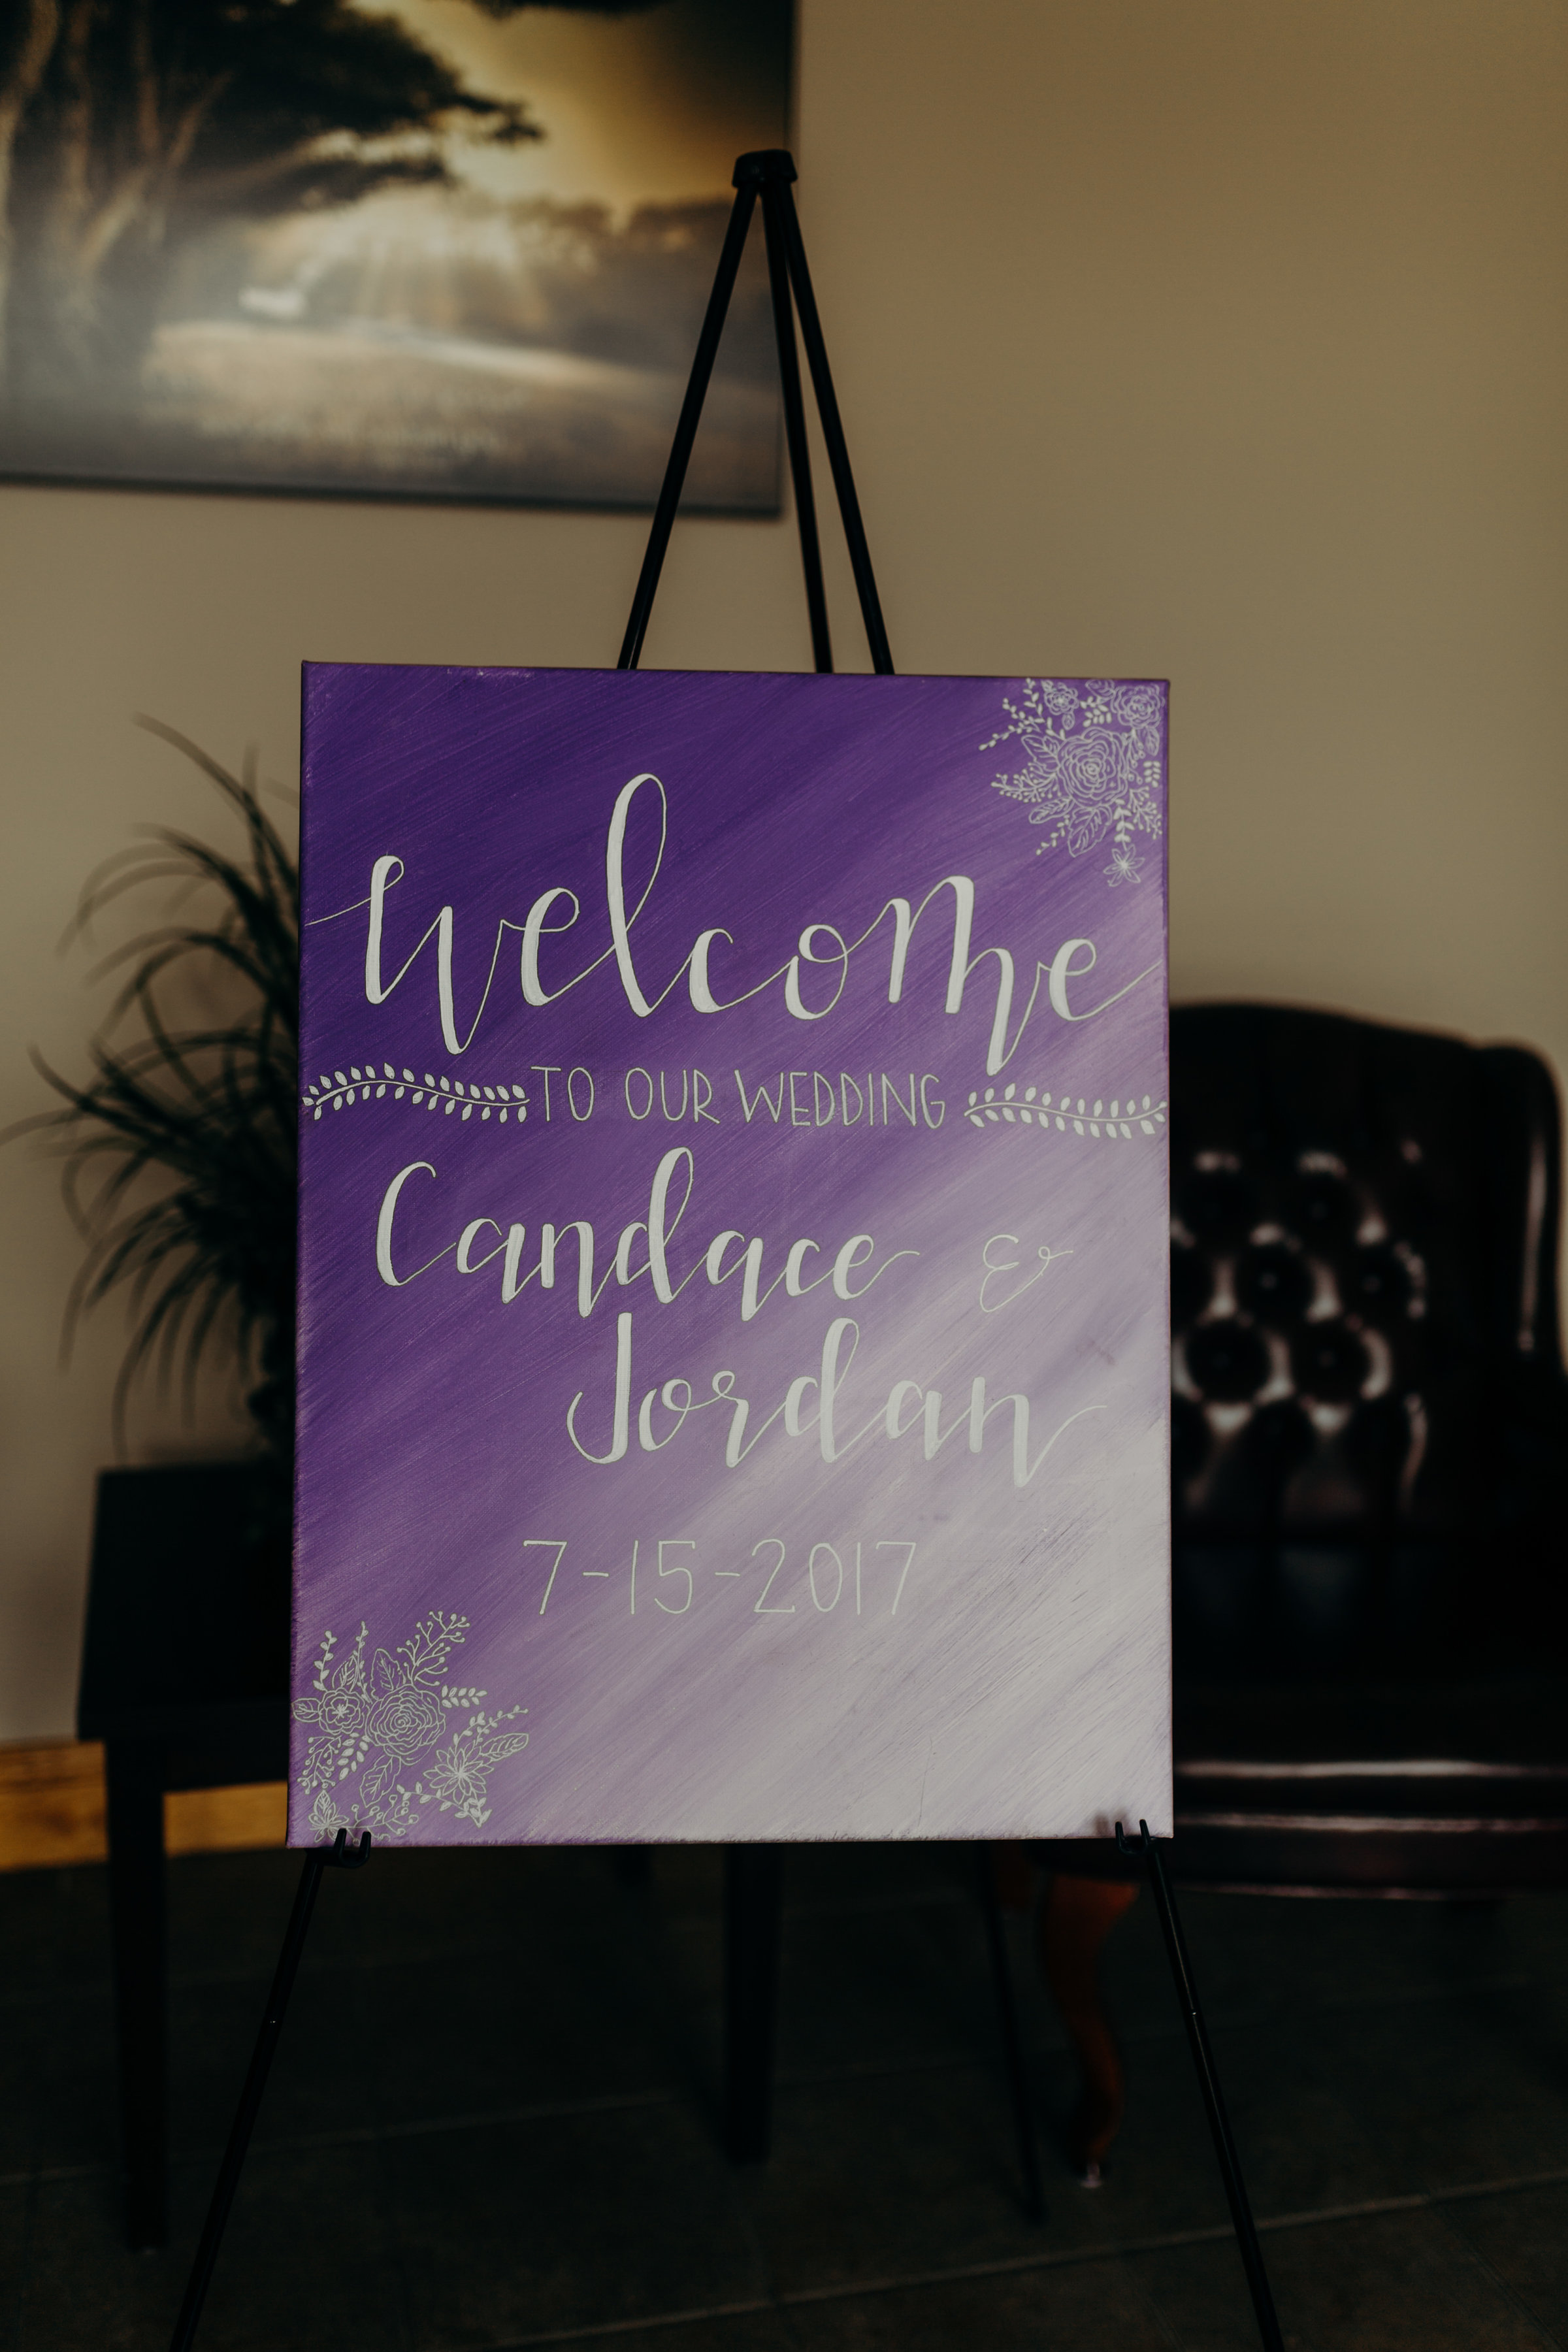 welcome
TO OUR WEDDING
Candace &
Jordan
7-15-2017